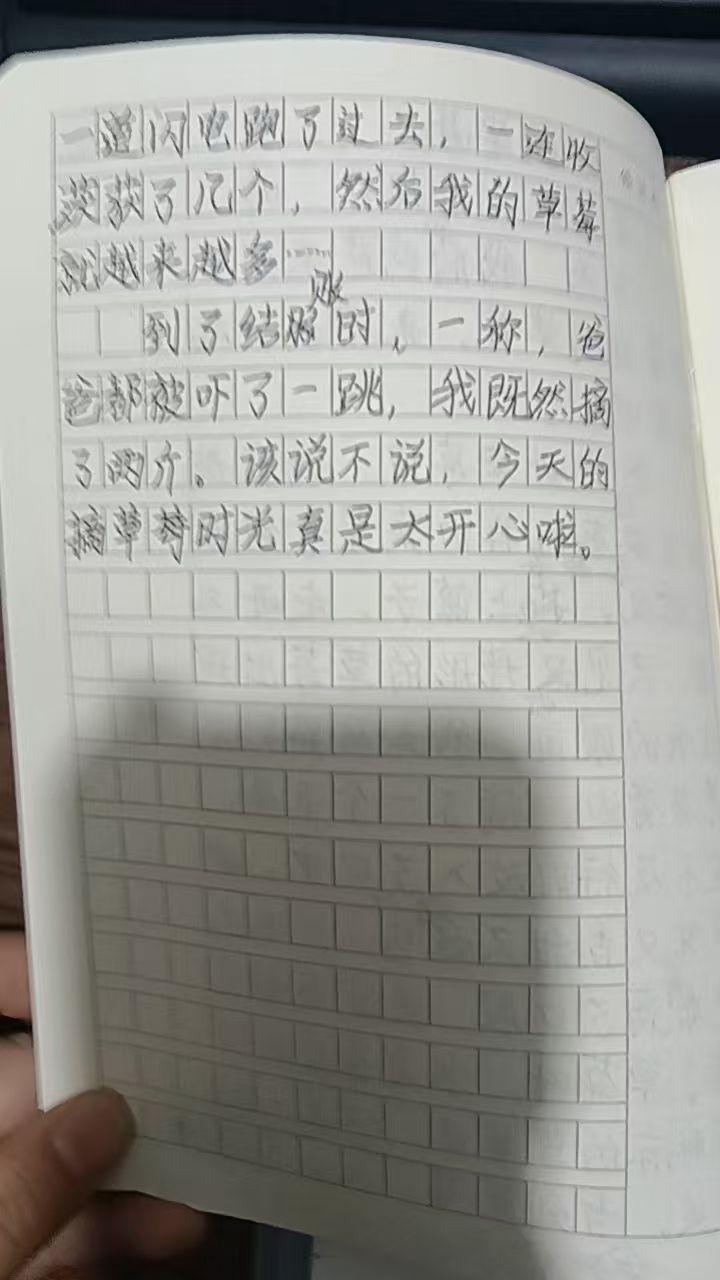 一道闪电跑了过去，一连收
获了几个，然后我的草莓
就越来越多……
到了结账时，一称，爸
爸都被吓了一跳，我既然摘
了两斤。该说不说，今天的
摘草莓时光真是太开心啦。